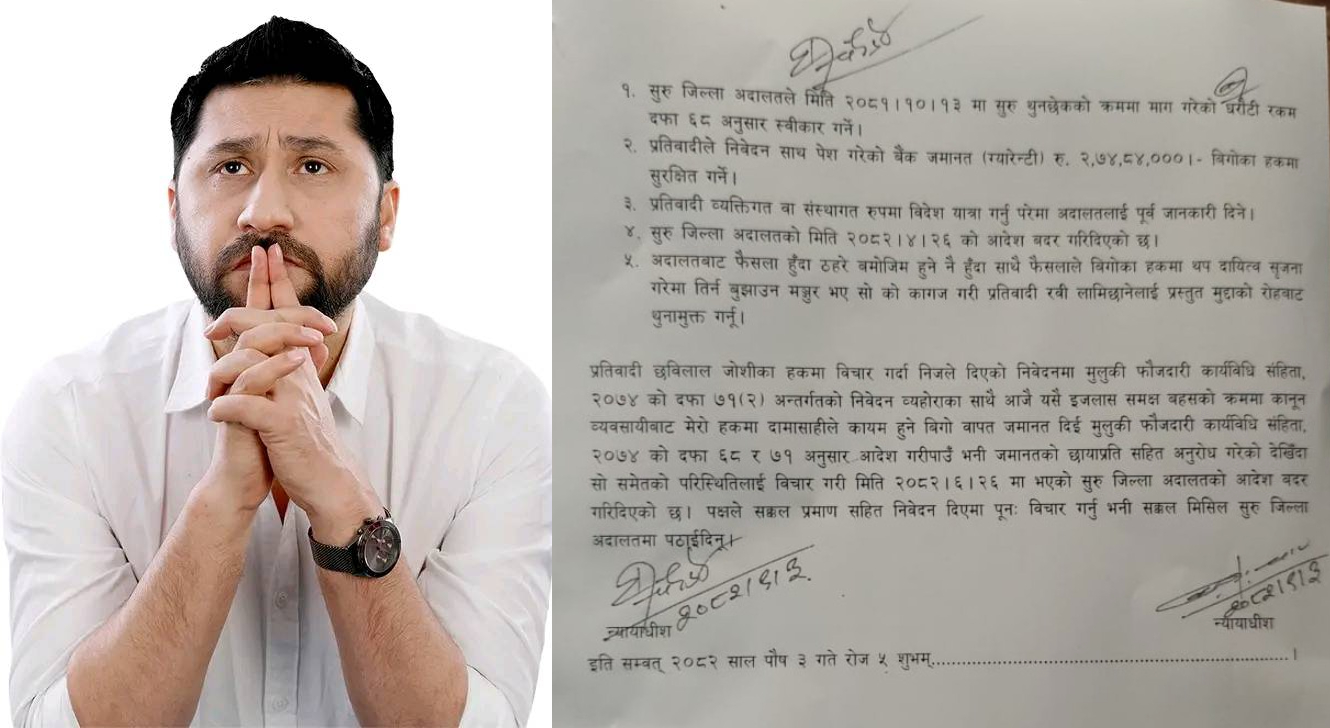 १. सुरु जिल्ला अदालतले मिति २०८१।१०।१३ मा सुरु थुनछेकको क्रममा माग गरेको धरौटी रकम
दफा ६८ अनुसार स्वीकार गर्ने।
२. प्रतिवादीले निवेदन साथ पेश गरेको बैंक जमानत (ग्यारेन्टी) रु. २,७४,८४,०००।- बिगोका हकमा
सुरक्षित गर्ने।
३. प्रतिवादी व्यक्तिगत वा संस्थागत रुपमा विदेश यात्रा गर्नु परेमा अदालतलाई पूर्व जानकारी दिने।
४. सुरु जिल्ला अदालतको मिति २०८२।४।२६ को आदेश बदर गरिदिएको छ।
५. अदालतबाट फैसला हुँदा ठहरे बमोजिम हुने नै हुँदा साथै फैसलाले बिगोका हकमा थप दायित्व सृजना
गरेमा तिर्न बुझाउन मञ्जुर भए सो को कागज गरी प्रतिवादी रवी लामिछानेलाई प्रस्तुत मुद्दाको रोहबाट
थुनामुक्त गर्नू।
प्रतिवादी छविलाल जोशीका हकमा विचार गर्दा निजले दिएको निवेदनमा मुलुकी फौजदारी कार्यविधि संहिता,
२०७४ को दफा ७१(२) अन्तर्गतको निवेदन व्यहोराका साथै आजै यसै इजलास समक्ष बहसको क्रममा कानून
व्यवसायीबाट मेरो हकमा दामासाहीले कायम हुने बिगो वापत जमानत दिई मुलुकी फौजदारी कार्यविधि संहिता,
२०७४ को दफा ६८ र ७१ अनुसार आदेश गरीपाउँ भनी जमानतको छायाप्रति सहित अनुरोध गरेको देखिँदा
सो समेतको परिस्थितिलाई विचार गरी मिति २०८२।६।२६ मा भएको सुरु जिल्ला अदालतको आदेश बदर
गरिदिएको छ। पक्षले सक्कल प्रमाण सहित निवेदन दिएमा पूनः विचार गर्नु भनी सक्कल मिसिल सुरु जिल्ला
अदालतमा पठाईदिनू।
२०८२।९।३
२०८२।९।३
न्यायाधीश
न्यायाधीश
इति सम्वत् २०८२ साल पौष ३ गते रोज ५ शुभम्.......................................................।